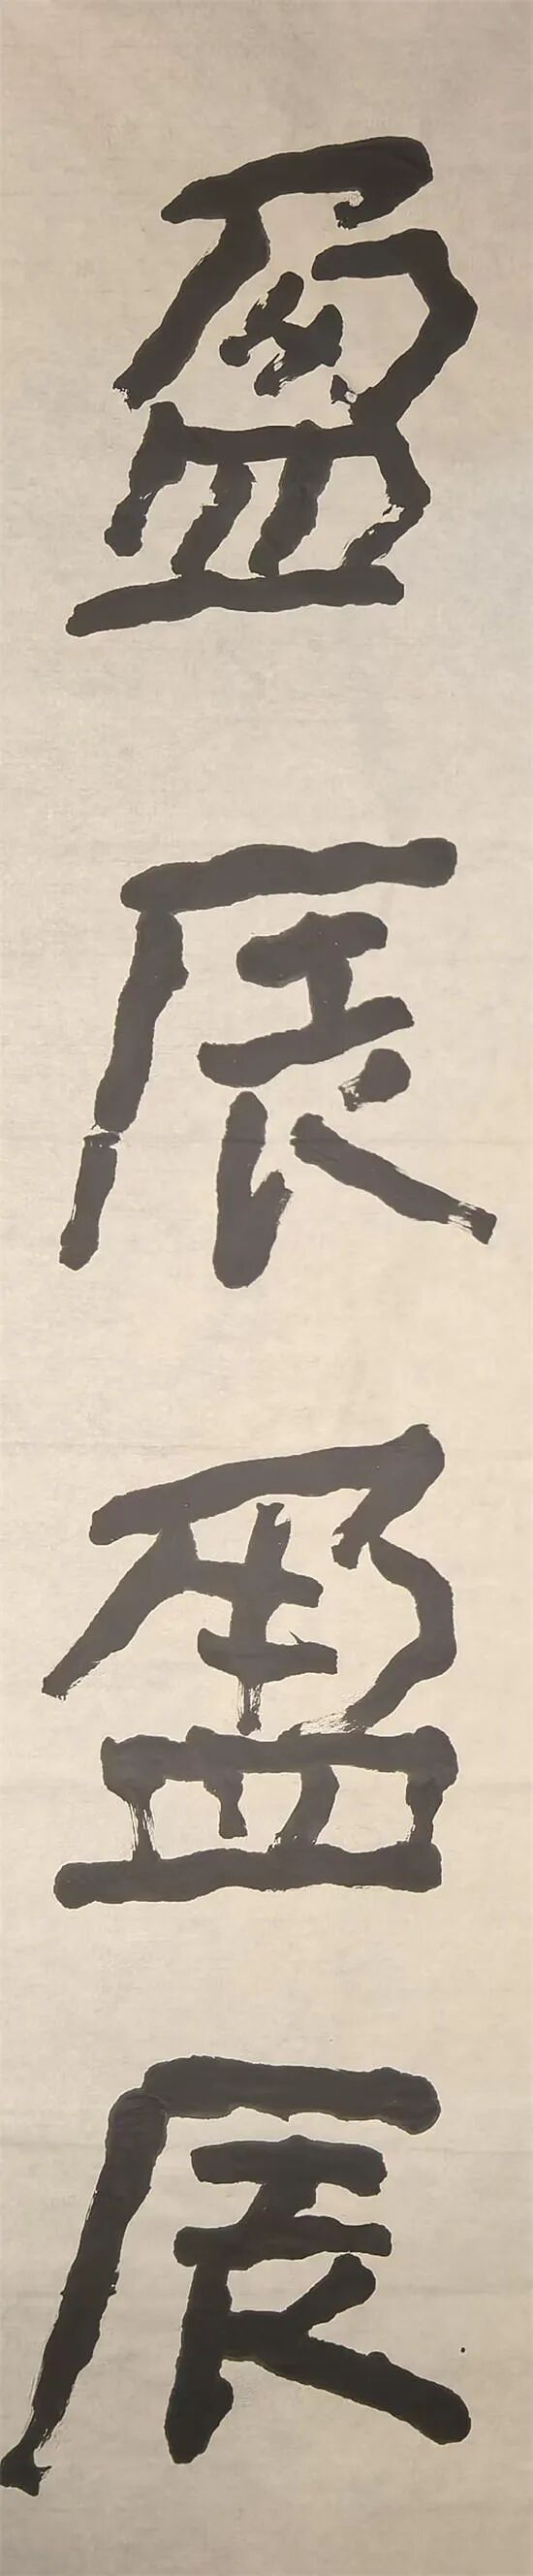 盈辰盈辰